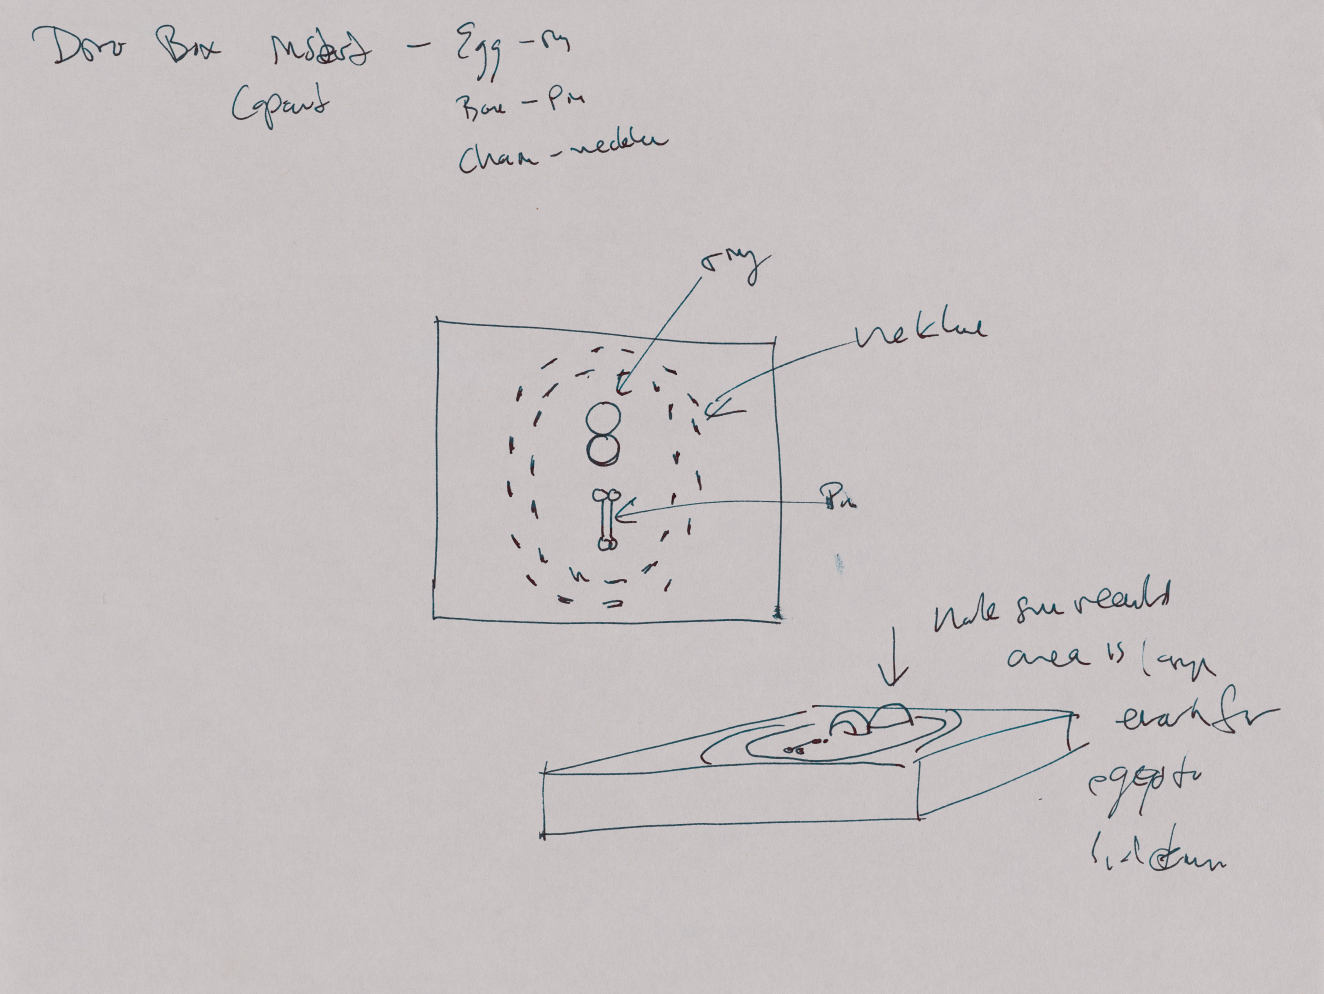 Box - Egg - ring
Bone - Pin
Chain - necklace
ring
necklace
Pin
Make sure recessed
area is large
enough for
eggs to